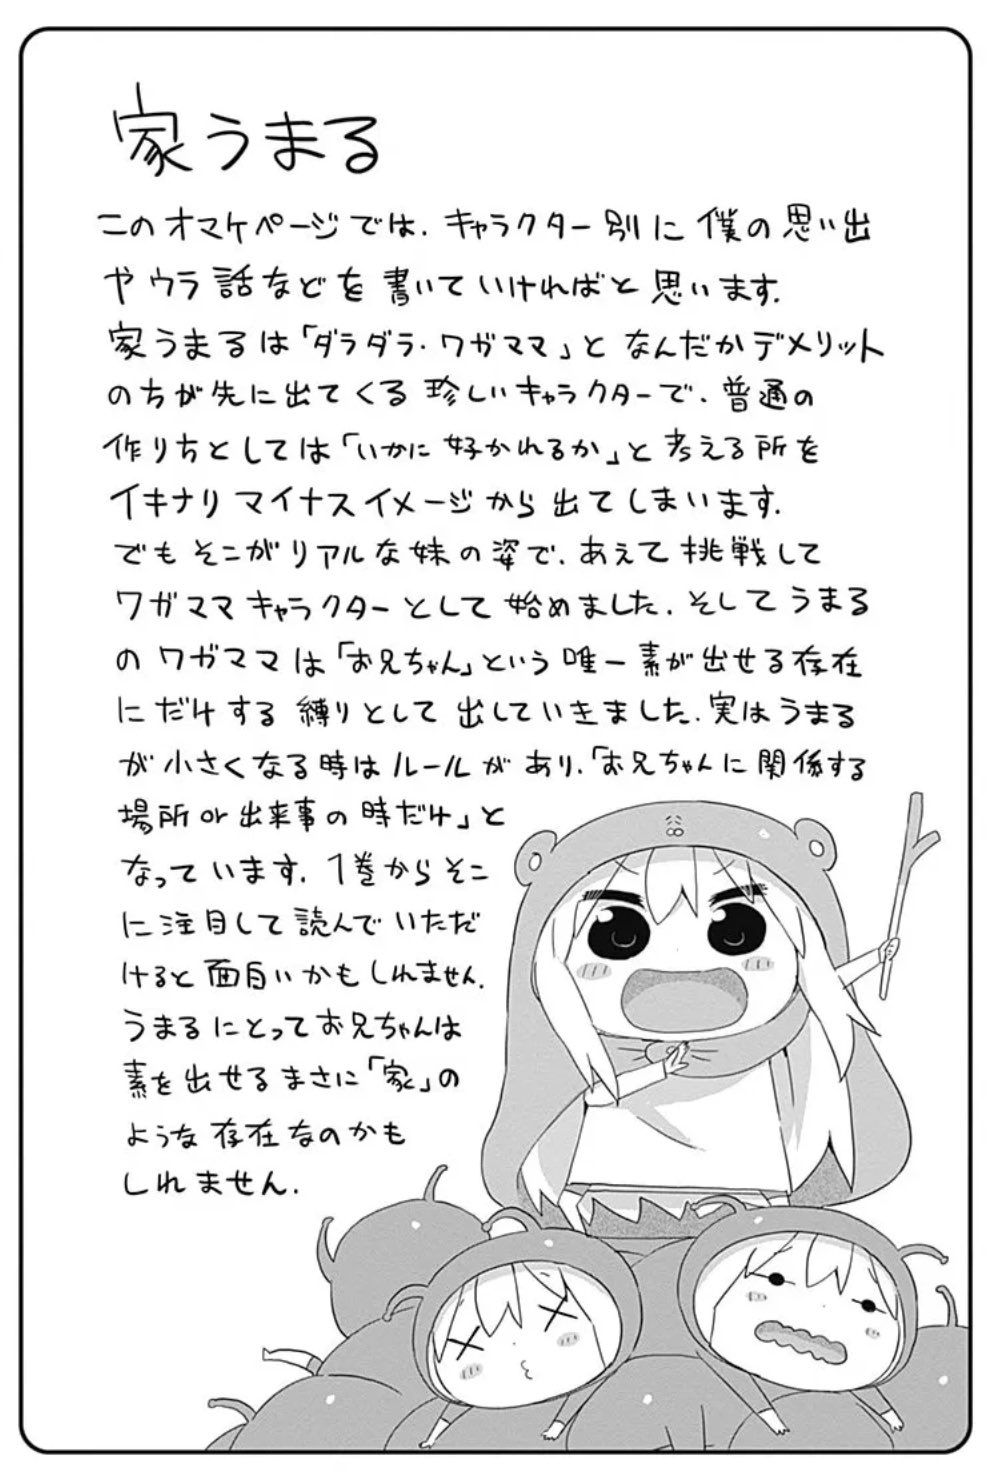 家うまる
このオマケページでは、キャラクター別に僕の思い出
やウラ話などを書いていければと思います。
家うまるは「ダラダラ・ワガママ」となんだかデメリット
のちが先に出てくる珍しいキャラクターで、普通の
作りちとしては「いかに好かれるか」と考える所を
イキナリマイナスイメージから出てしまいます。
でもそこがリアルな妹の姿で、あえて挑戦して
ワガママキャラクターとして始めました。そしてうまる
のワガママは「お兄ちゃん」という唯一素が出せる存在
にだけする縛りとして出していきました。実はうまる
が小さくなる時はルールがあり、「お兄ちゃんに関係する
場所or出来事の時だけ」と
なっています。1巻からそこ
に注目して読んでいただ
けると面白いかもしれません。
うまるにとってお兄ちゃんは
素を出せるまさに「家」の
ような存在なのかも
しれません。